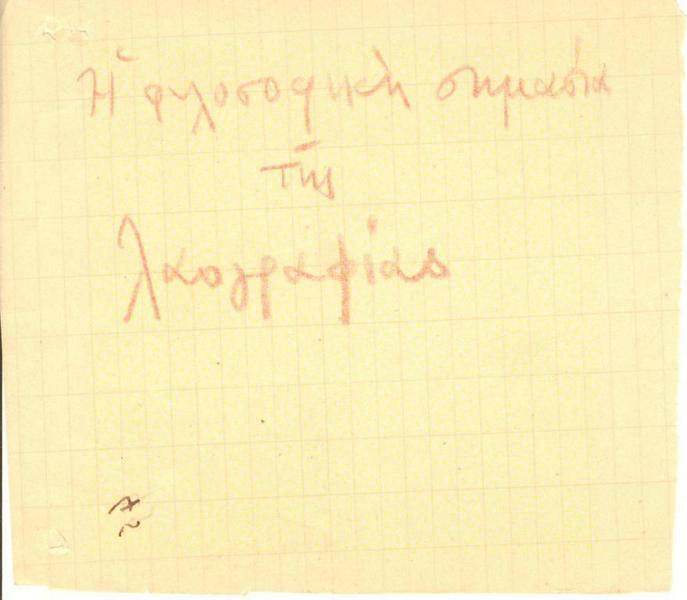 Ἡ φιλοσοφικὴ σημασία
τῆς
λαογραφίας